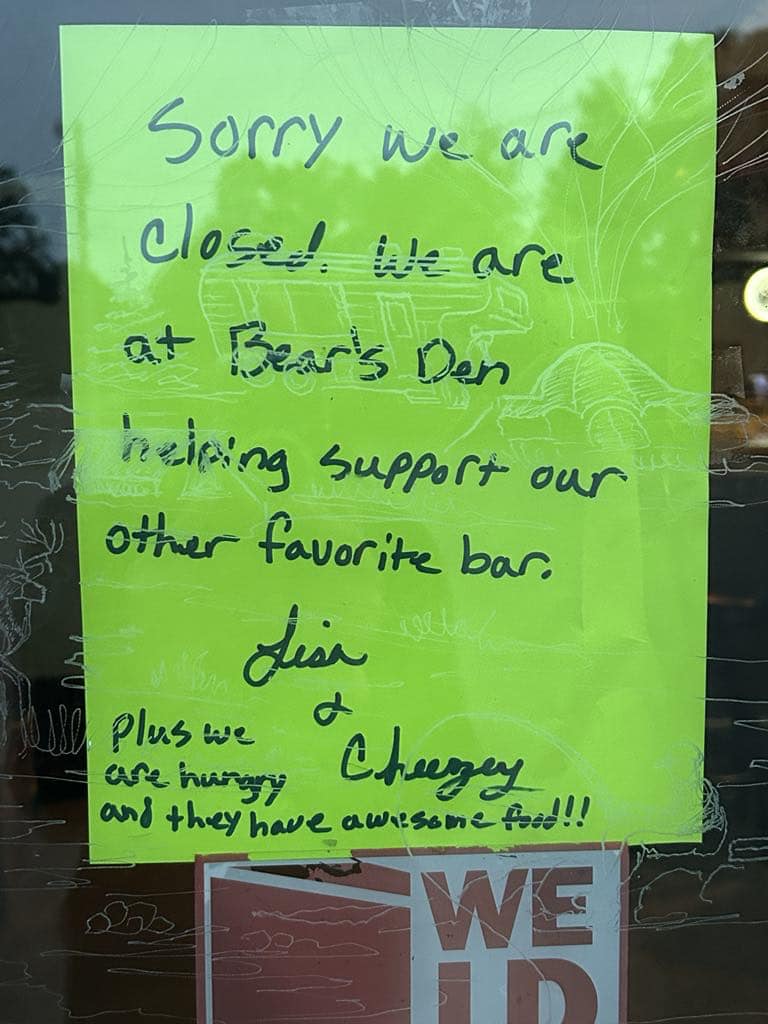 Sorry we are
closed. We are
at Bear's Den
helping support our
other favorite bar.
Lisa
&
Cheezey
Plus we
are hungry
and they have awesome food!!
WE
ID